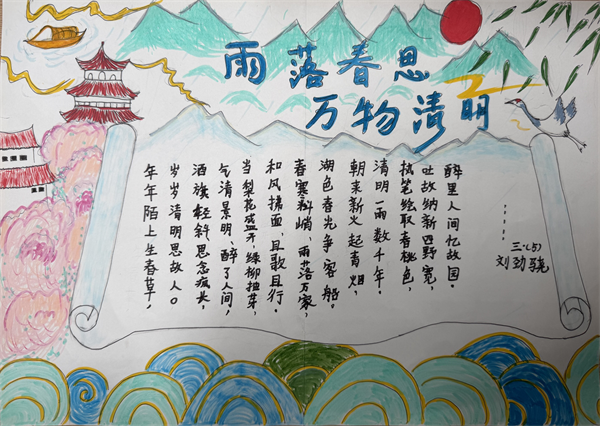 雨落春思
万物清明
醉里人间忆故园。
吐故纳新四野宽,
执笔绘取春桃色,
清明一雨数千年。
朝来新火起青烟,
湖色春光争客船。
春寒料峭,雨落万家,
和风拂面,且歌且行。
当梨花盛开,绿柳抽芽,
气清景明、醉了人间,
酒旗轻斜思念疯长,
岁岁清明思故人。
年年陌上生春草,
三·(5)
刘劲骁